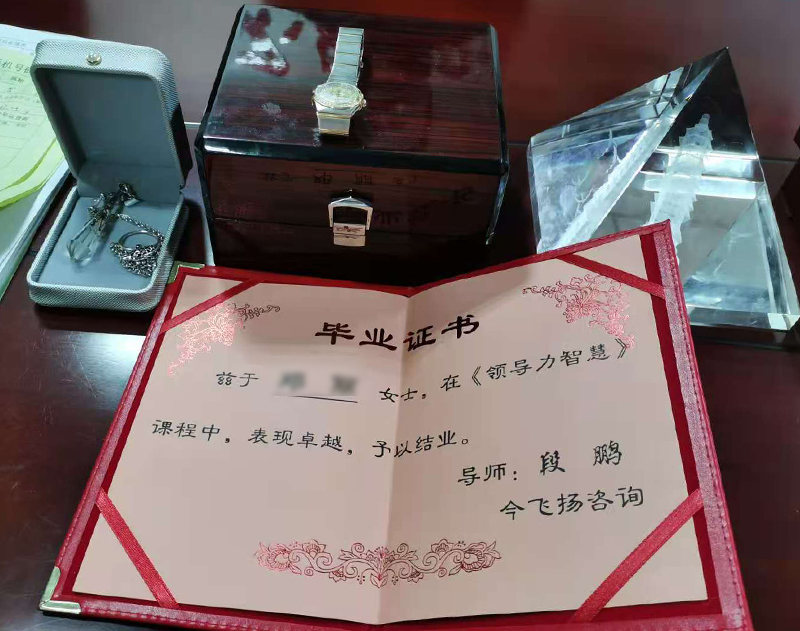 毕业证书
兹于 女士，在《领导力智慧》
课程中，表现卓越，予以结业。
导师：段 鹏
今飞扬咨询